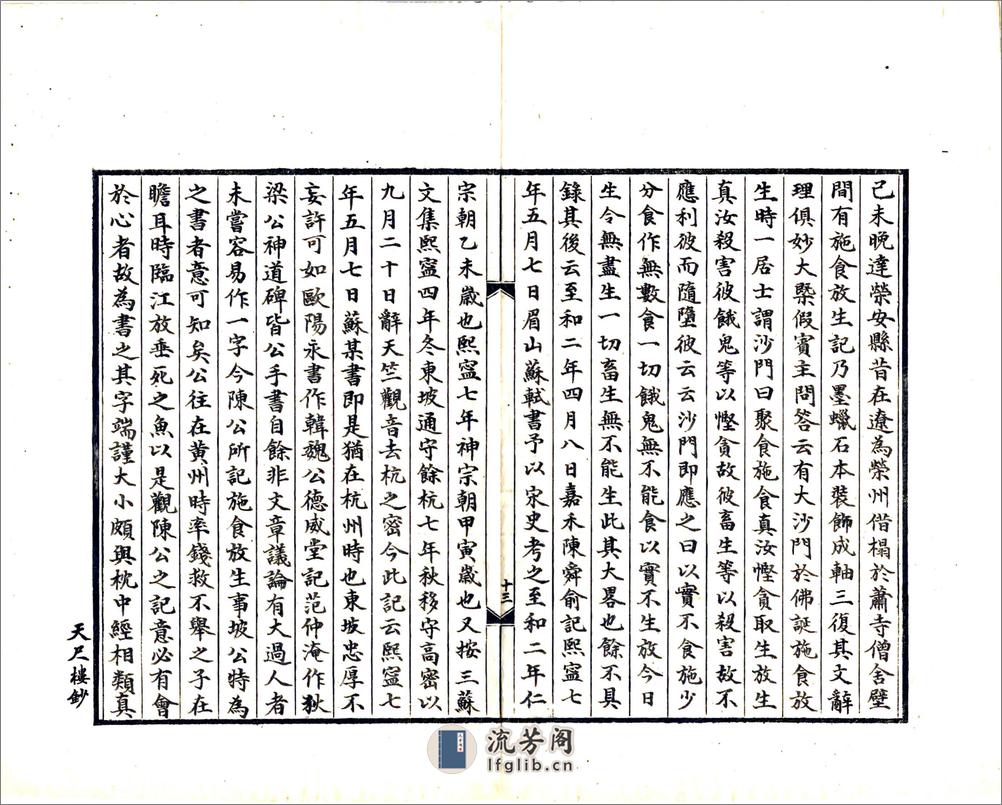 己未晚達榮安縣昔在遼為榮州偕榻於蕭寺僧舍壁
間有施食放生記乃墨蠟石本裝飾成軸三復其文辭
理俱妙大槩假賓主問答云有大沙門於佛誕施食放
生時一居士謂沙門曰聚食施食真汝慳貪取生放生
真汝殺害彼餓鬼等以慳貪故彼畜生等以殺害故不
應利彼而隨墮彼云云沙門即應之曰以實不食施少
分食作無數食一切餓鬼無不能食以實不生放今日
生令無盡生一切畜生無不能生此其大畧也餘不具
錄其後云至和二年四月八日嘉禾陳舜俞記熙寧七
年五月七日眉山蘇軾書予以宋史考之至和二年仁
十三
宗朝乙未歲也熙寧七年神宗朝甲寅歲也又按三蘇
文集熙寧四年冬東坡通守餘杭七年秋移守高密以
九月二十日辭天竺觀音去杭之密今此記云熙寧七
年五月七日蘇某書即是猶在杭州時也東坡忠厚不
妄許可如歐陽永書作韓魏公德威堂記范仲淹作狄
梁公神道碑皆公手書自餘非文章議論有大過人者
未嘗容易作一字今陳公所記施食放生事坡公特為
之書者意可知矣公往在黃州時率錢救不舉之子在
瞻耳時臨江放垂死之魚以是觀陳公之記意必有會
於心者故為書之其字端謹大小頗與枕中經相類真
天尺樓鈔
流芳阁
lfglib.cn